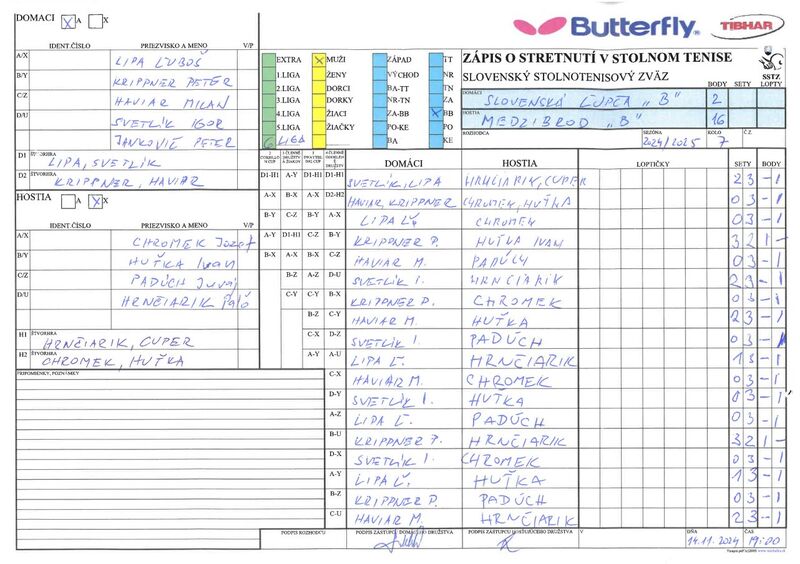 DOMACI X A X
Butterfly
TIBHAR
IDENT.ČÍSLO PRIEZVISKO A MENO V/P
A/X LIPA ĽUBOŠ
B/Y KRIPPNER PETER
C/Z HAVIAR MILAN
D/U SVETLÍK IGOR
JANKOVIČ PETER
D1 ŠTVORHRA LIPA, SVETLÍK
D2 ŠTVORHRA KRIPPNER, HAVIAR
HOSTIA A X X
IDENT.ČÍSLO PRIEZVISKO A MENO V/P
A/X CHROMEK Jozef
B/Y HUŤKA Ivan
C/Z PADÚCH Juraj
D/U HRNČIARIK Paľo
H1 ŠTVORHRA HRNČIARIK, CUPER
H2 ŠTVORHRA CHROMEK, HUŤKA
PRIPOMIENKY, POZNÁMKY
EXTRA X MUŽI ZÁPAD TT
1.LIGA ŽENY VÝCHOD NR
2.LIGA DORCI BA-TT TN
3.LIGA DORKY NR-TN ZA
4.LIGA ŽIACI ZA-BB X BB
5.LIGA ŽIAČKY PO-KE PO
6 LIGA BA KE
ZÁPIS O STRETNUTÍ V STOLNOM TENISE
SLOVENSKÝ STOLNOTENISOVÝ ZVÄZ BODY SETY LOPTY
SSTZ
DOMÁCI SLOVENSKÁ ĽUPČA "B" 2
HOSTIA MEDZIBROD "B" 16
ROZHODCA SEZÓNA 2024/2025 KOLO 7 Č.Z.
DOMÁCI HOSTIA LOPTIČKY SETY BODY
D1-H1 A-Y D1-H1 D1-H1 SVETLÍK, LIPA HRNČIARIK, CUPER 2 3 - 1
A-X B-X A-X D2-H2 HAVIAR, KRIPPNER CHROMEK, HUŤKA 0 3 - 1
B-Y C-Z B-Y A-X LIPA Ľ. CHROMEK 0 3 - 1
A-Y D1-H1 C-Z B-Y KRIPPNER P. HUŤKA IVAN 3 2 1 -
B-X A-X B-X C-Z HAVIAR M. PADÚCH 0 3 - 1
B-Z A-Z D-U SVETLÍK I. HRNČIARIK 2 3 - 1
C-Y C-Y B-X KRIPPNER P. CHROMEK 0 3 - 1
B-Z C-Y HAVIAR M. HUŤKA 2 3 - 1
C-X D-Z SVETLÍK I. PADÚCH 0 3 - 1
A-Y A-U LIPA Ľ. HRNČIARIK 1 3 - 1
C-X HAVIAR M. CHROMEK 0 3 - 1
D-Y SVETLÍK I. HUŤKA 0 3 - 1
A-Z LIPA Ľ. PADÚCH 0 3 - 1
B-U KRIPPNER P. HRNČIARIK 3 2 1 -
D-X SVETLÍK I. CHROMEK 0 3 - 1
A-Y LIPA Ľ. HUŤKA 1 3 - 1
B-Z KRIPPNER P. PADÚCH 0 3 - 1
C-U HAVIAR M. HRNČIARIK 2 3 - 1
PODPIS ROZHODCU PODPIS ZÁSTUPCU DOMÁCEHO DRUŽSTVA PODPIS ZÁSTUPCU HOSŤUJÚCEHO DRUŽSTVA V DŇA 14.11.2024 ČAS 19:00